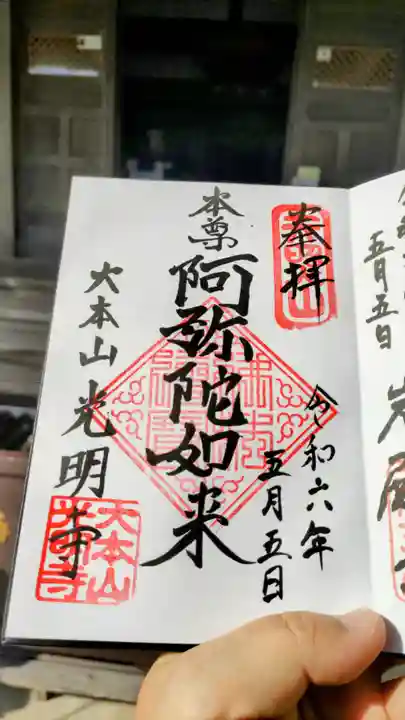 五月五日
奉拝
令和六年
五月五日
本尊
阿弥陀如来
大本山光明寺
大本山
光明寺